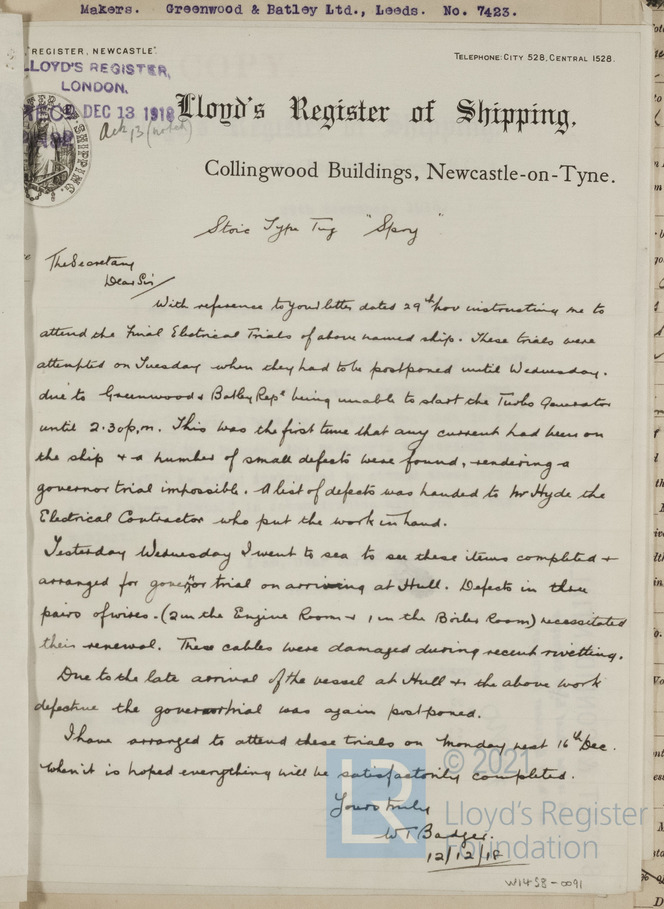 Makers. Greenwood & Batley Ltd., Leeds. No. 7423.
REGISTER, NEWCASTLE".
TELEPHONE: CITY 528, CENTRAL 1528.
LLOYD'S REGISTER,
LONDON.
REC'D DEC 13 1918
Ack 13 (noted)
SHIPPING.
Lloyd's Register of Shipping,
Collingwood Buildings, Newcastle-on-Tyne.
Stoic Type Tug "Spry"
The Secretary
Dear Sir
With reference to your letter dated 29th Nov instructing me to
attend the Final Electrical Trials of above named ship. These trials were
attempted on Tuesday when they had to be postponed until Wednesday.
due to Greenwood & Batley Reps being unable to start the Turbo Generator
until 2.30 p.m. This was the first time that any current had been on
the ship & a number of small defects were found, rendering a
governor trial impossible. A list of defects was handed to Mr Hyde the
Electrical Contractor who put the work in hand.
Yesterday Wednesday I went to sea to see these items completed &
arranged for governor trial on arriving at Hull. Defects in three
pairs of wires. (2 in the Engine Room & 1 in the Boiler Room) necessitated
their renewal. These cables were damaged during recent rivetting.
Due to the late arrival of the vessel at Hull & the above work
defective the governor trial was again postponed.
I have arranged to attend these trials on Monday next 16th Dec.
when it is hoped everything will be satisfactorily completed.
Yours truly
W T Badger.
12/12/18
© 2021
LR
Lloyd's Register
Foundation
W1458-0091